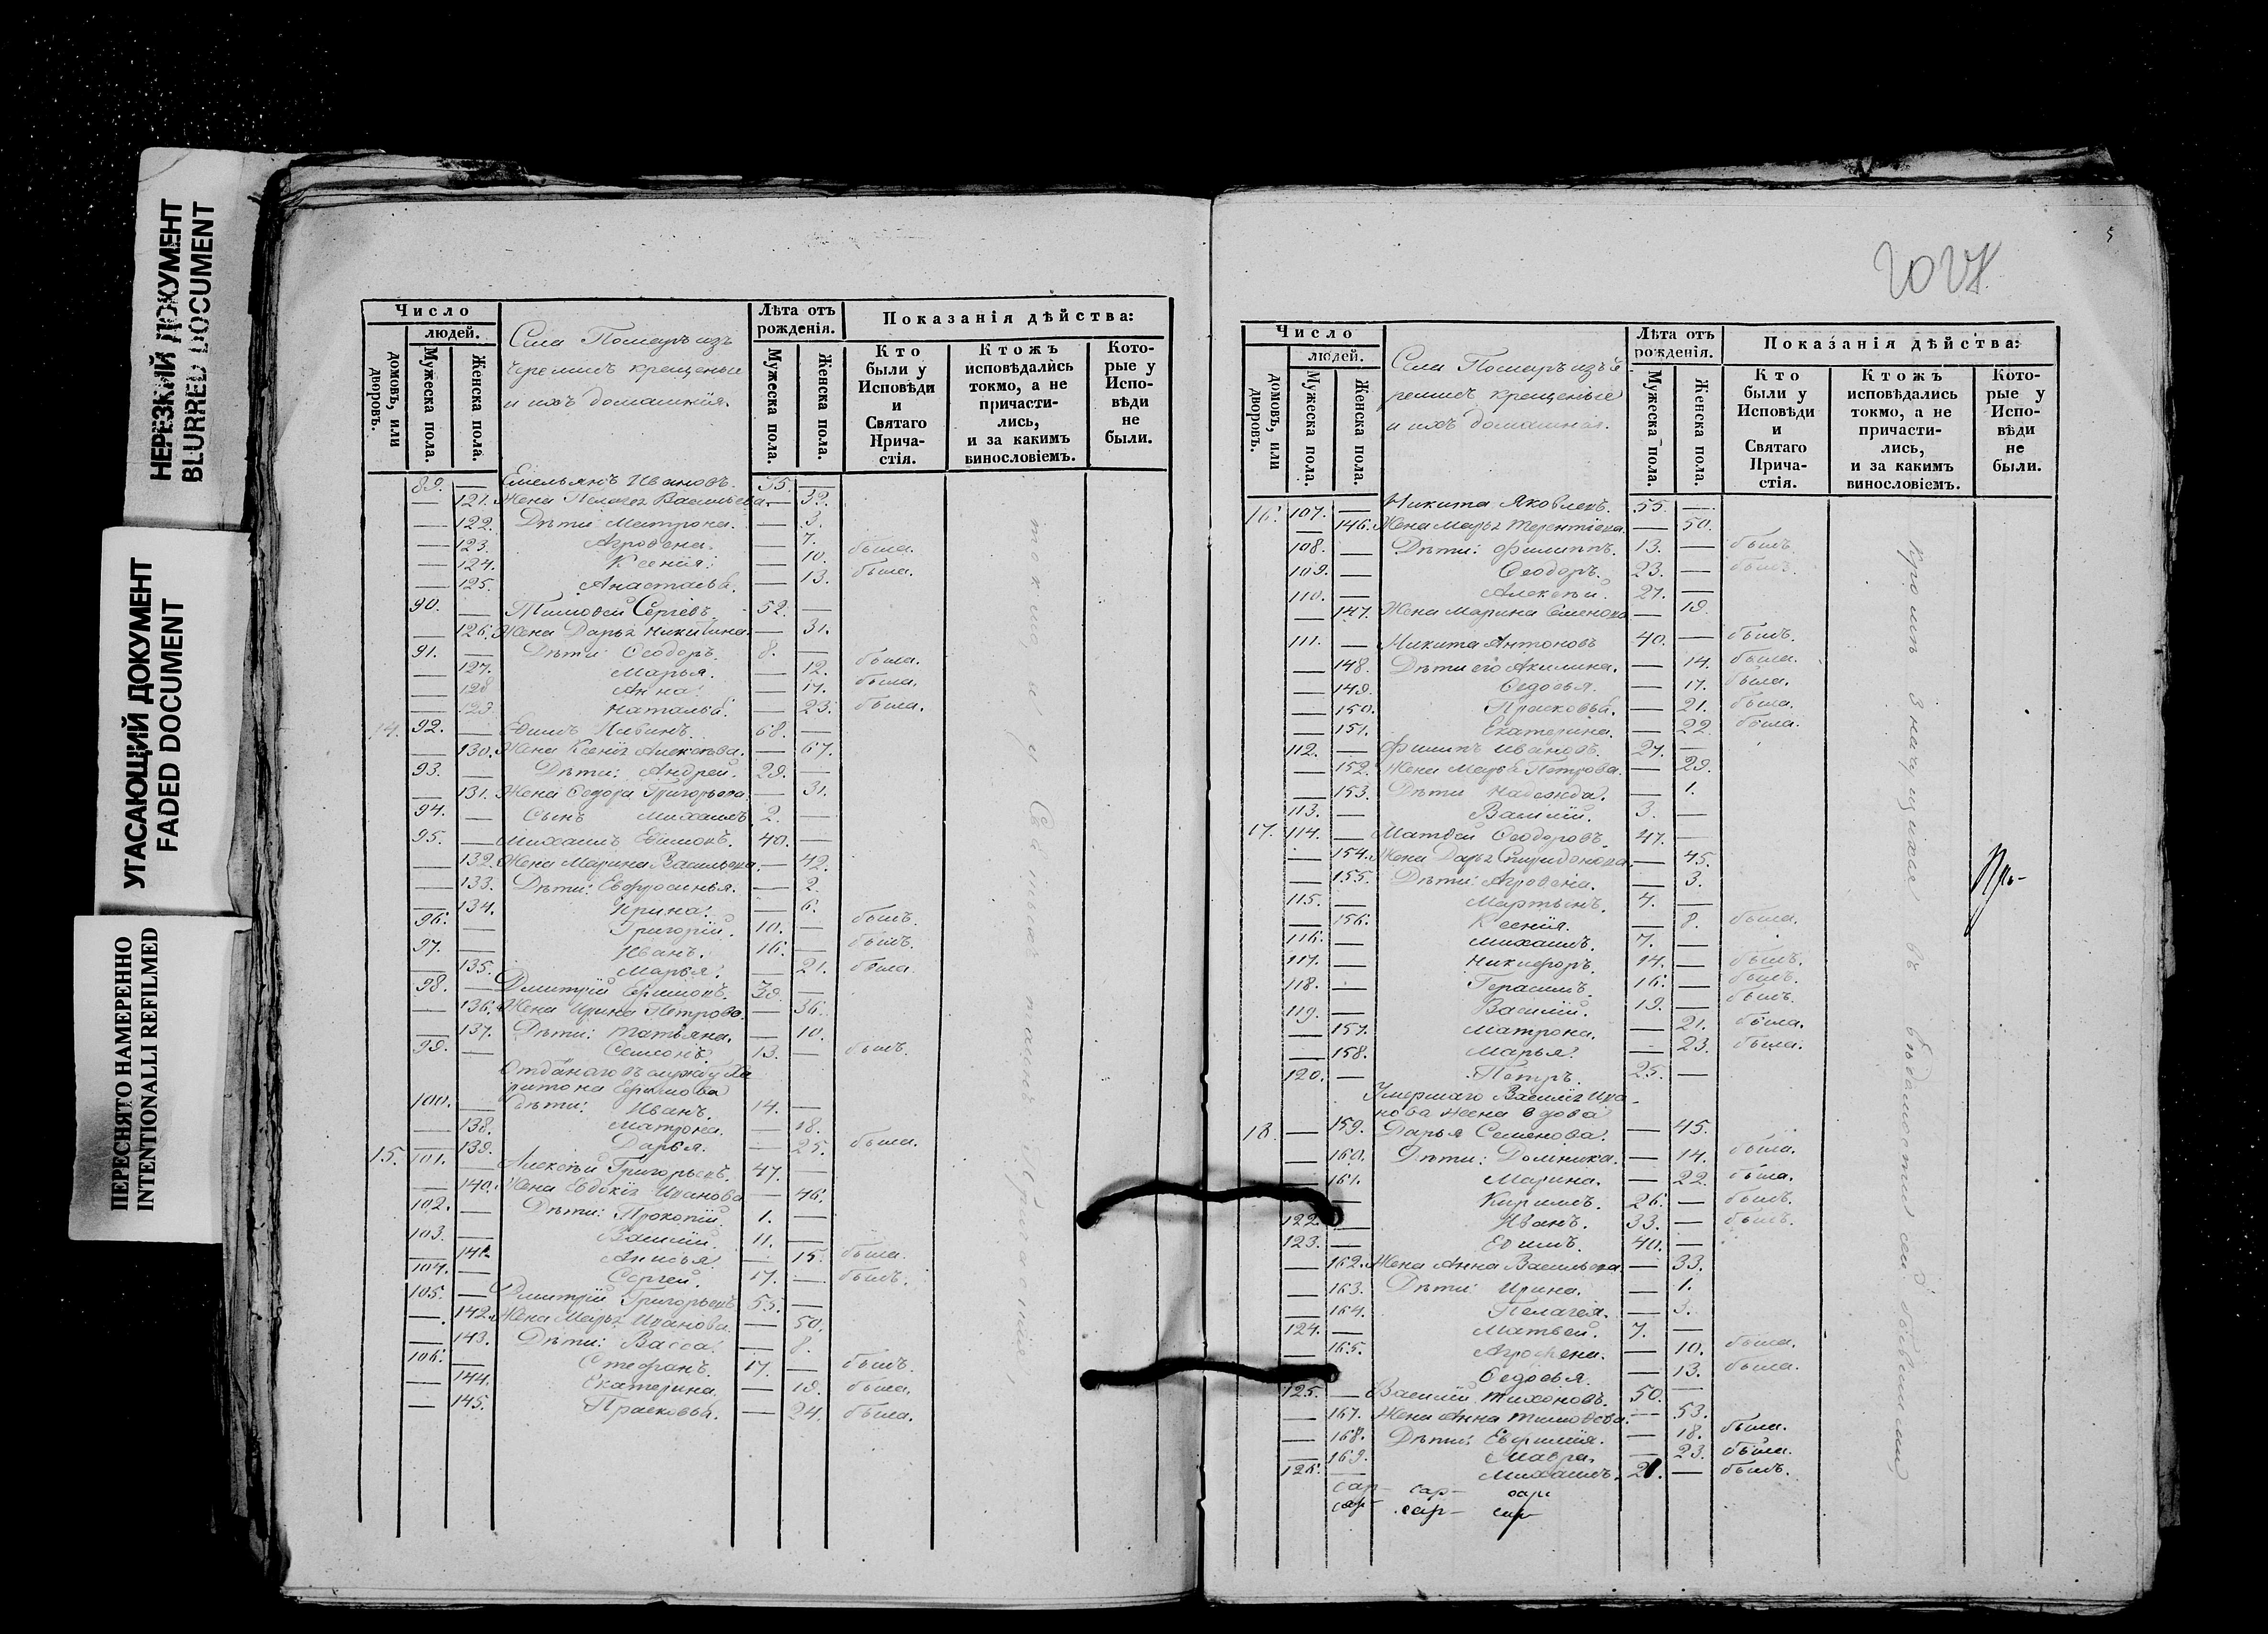 НЕРЕЗКИЙ ДОКУМЕНТ
BLURRED DOCUMENT
УГАСАЮЩИЙ ДОКУМЕНТ
FADED DOCUMENT
ПЕРЕСНЯТО НАМЕРЕННО
INTENTIONALLI REFILMED
Число
людей.
домовъ, или дворовъ.
Мужеска пола.
Женска пола.
Села Помаръ изъ
Черемисъ крещеные
и ихъ домашнія.
Лѣта отъ рожденія.
Мужеска пола.
Женска пола.
Показанія дѣйства:
Кто были у Исповѣди и Святаго Прича- стія.
Ктожъ исповѣдались токмо, а не причасти- лись, и за какимъ винословіемъ.
Кото- рые у Испо- вѣди не были.
89. — Емельянъ Ивановъ. 35. —
— 121. Жена Пелагея Васильева. — 32.
— 122. Дѣти: Матрона. — 3.
— 123. Агрофена. — 7.
— 124. Ксенія. — 10. была.
— 125. Анастасья. — 13. была.
90. — Тимофей Сергѣевъ. 52. —
— 126. Жена Дарья Никитина. — 31.
91. — Дѣти: Ѳеодоръ. 8. —
— 127. Марья. — 12. была.
— 128. Анна. — 17. была.
— 129. Наталья. — 23. была.
14. 92. — Ефимъ 68. —
— 130. Жена Ксенія Алексѣева. — 67.
93. — Дѣти: Андрей. 29. —
— 131. Жена Ѳедора Григорьева. — 31.
94. — Сынъ Михаилъ. 2. —
95. — Михаилъ Ефимовъ. 40. —
— 132. Жена Марина Васильева. — 42.
— 133. Дѣти: Евфросинья. — 2.
— 134. Ирина. — 6.
96. — Григорій. 10. — былъ.
97. — Иванъ. 16. — былъ.
— 135. Марья. — 21. была.
98. — Дмитрій Ефимовъ. 39. —
— 136. Жена Ирина Петрова. — 36.
— 137. Дѣти: Татьяна. — 10.
99. — Семенъ. 13. — былъ.
Отданаго въ службу Ха
ритона Ефимова
100. — дѣти: Иванъ. 14. —
— 138. Матрона. — 18.
— 139. Дарья. — 25. была.
15. 101. — Алексѣй Григорьевъ. 47. —
— 140. Жена Евдокія Иванова — 46.
102. — Дѣти: Прокопій. 1. —
103. — Василій. 11. —
— 141. Анисья. — 15. была.
104. — Сергей. 17. — былъ.
105. — Дмитрій Григорьевъ. 53. —
— 142. Жена Марья Иванова. — 50.
— 143. Дѣти: Васса. — 8.
106. — Стефанъ. 17. — былъ.
— 144. Екатерина. — 19. была.
— 145. Прасковья. — 24. была.
Число
людей.
домовъ, или дворовъ.
Мужеска пола.
Женска пола.
Села Помаръ изъ Че
ремисъ крещеные
и ихъ домашнія.
Лѣта отъ рожденія.
Мужеска пола.
Женска пола.
Показанія дѣйства:
Кто были у Исповѣди и Святаго Прича- стія.
Ктожъ исповѣдались токмо, а не причасти- лись, и за какимъ винословіемъ.
Кото- рые у Испо- вѣди не были.
16. 107. — Никита Яковлевъ. 55. —
— 146. Жена Марья Терентіева. — 50.
108. — Дѣти: Филиппъ. 13. — былъ.
109. — Ѳеодоръ. 23. — былъ.
110. — Алексѣй. 27. —
— 147. Жена Марина Семенова — 19.
111. — Никита Антоновъ 40. — былъ.
— 148. Дѣти его Акилина. — 14. была.
— 149. Ѳедосья. — 17. была.
— 150. Прасковья. — 21. была.
— 151. Екатерина. — 22. была.
112. — Филипъ Ивановъ. 27. —
— 152. Жена Марья Петрова. — 29.
— 153. Дѣти Надежда. — 1.
113. — Василій. 3. —
17. 114. — Матвей Ѳеодоровъ. 47. —
— 154. Жена Дарья Спиридонова. — 45.
— 155. Дѣти: Агрофена. — 3.
115. — Мартынъ. 4. —
— 156. Ксенія. — 8. была.
116. — Михаилъ. 7. —
117. — Никифоръ. 14. — былъ.
118. — Герасимъ. 16. — былъ.
119. — Василій. 19. — былъ.
— 157. Матрона. — 21. была.
— 158. Марья. — 23. была.
120. — Петръ. 25. —
Умершаго Василія Ива
нова жена вдова
18. — 159. Дарья Семенова. — 45.
— 160. Дѣти: Домника. — 14. была.
— 161. Марина. — 22. была.
— Кирилъ. 26. — былъ.
122. — Иванъ. 33. — былъ.
123. — Ефимъ. 40. —
— 162. Жена Анна Васильева. — 33.
— 163. Дѣти: Ирина. — 1.
— 164. Пелагея. — 3.
124. — Матвей. 7. —
— 165. Агрофена. — 10. была.
Ѳедосья. — 13. была.
125. — Василій Тихоновъ. 50. —
— 167. Жена Анна Тимофеева. — 53.
— 168. Дѣти: Евфимія. — 18. была.
— 169. Мавра. — 23. была.
126. — Михаилъ. 21. — былъ.